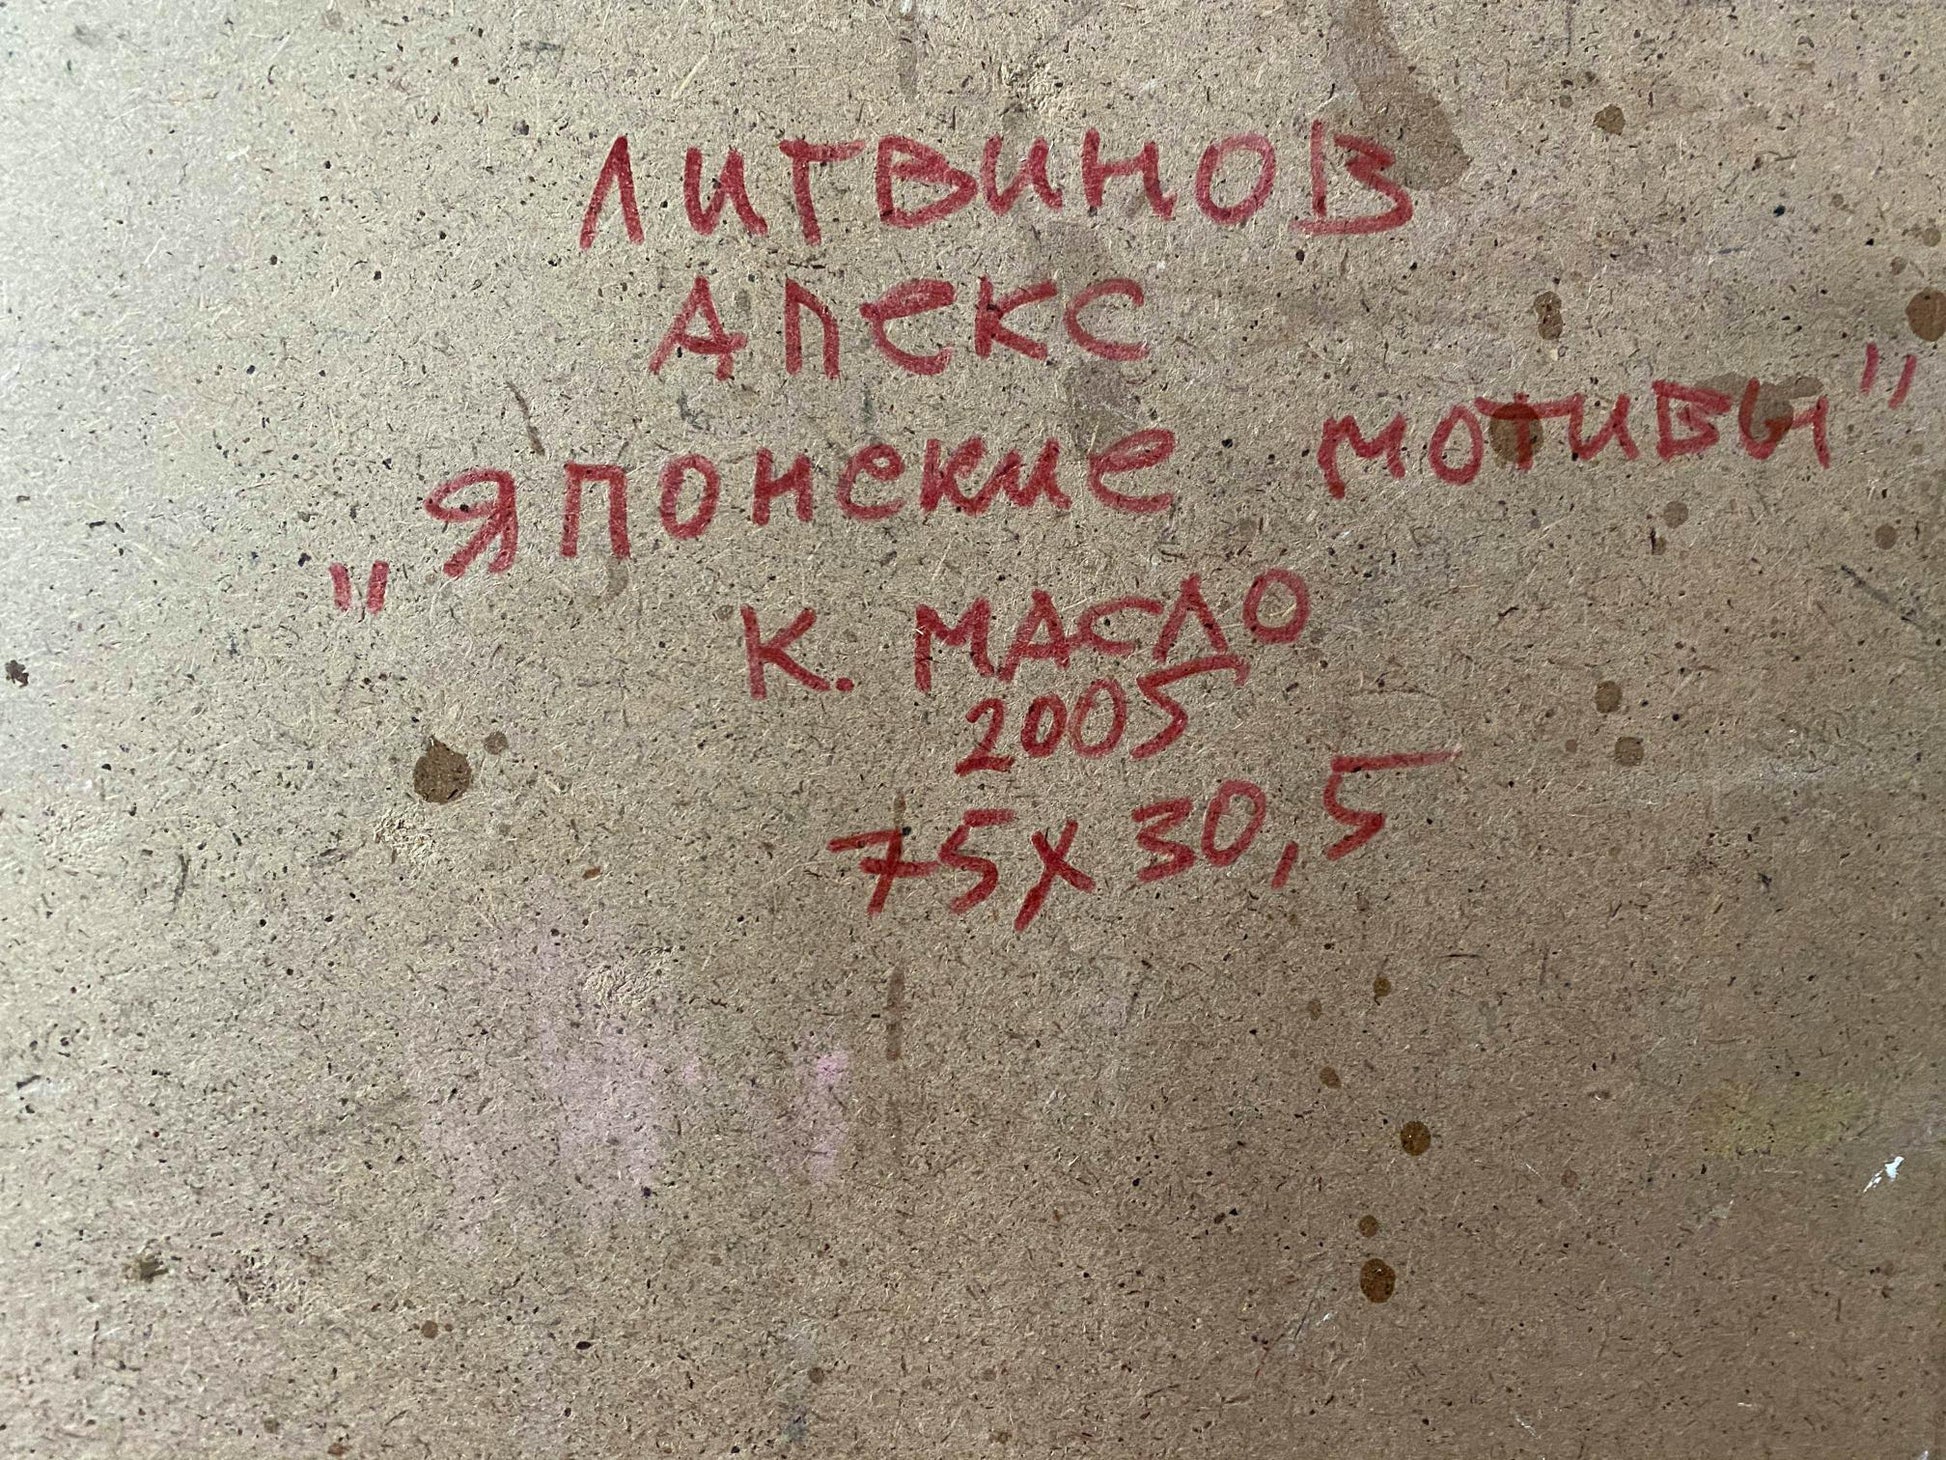 ЛИТВИНОВ
АЛЕКС
"ЯПОНСКИЕ МОТИВЫ"
К. МАСЛО
2005
75х30,5